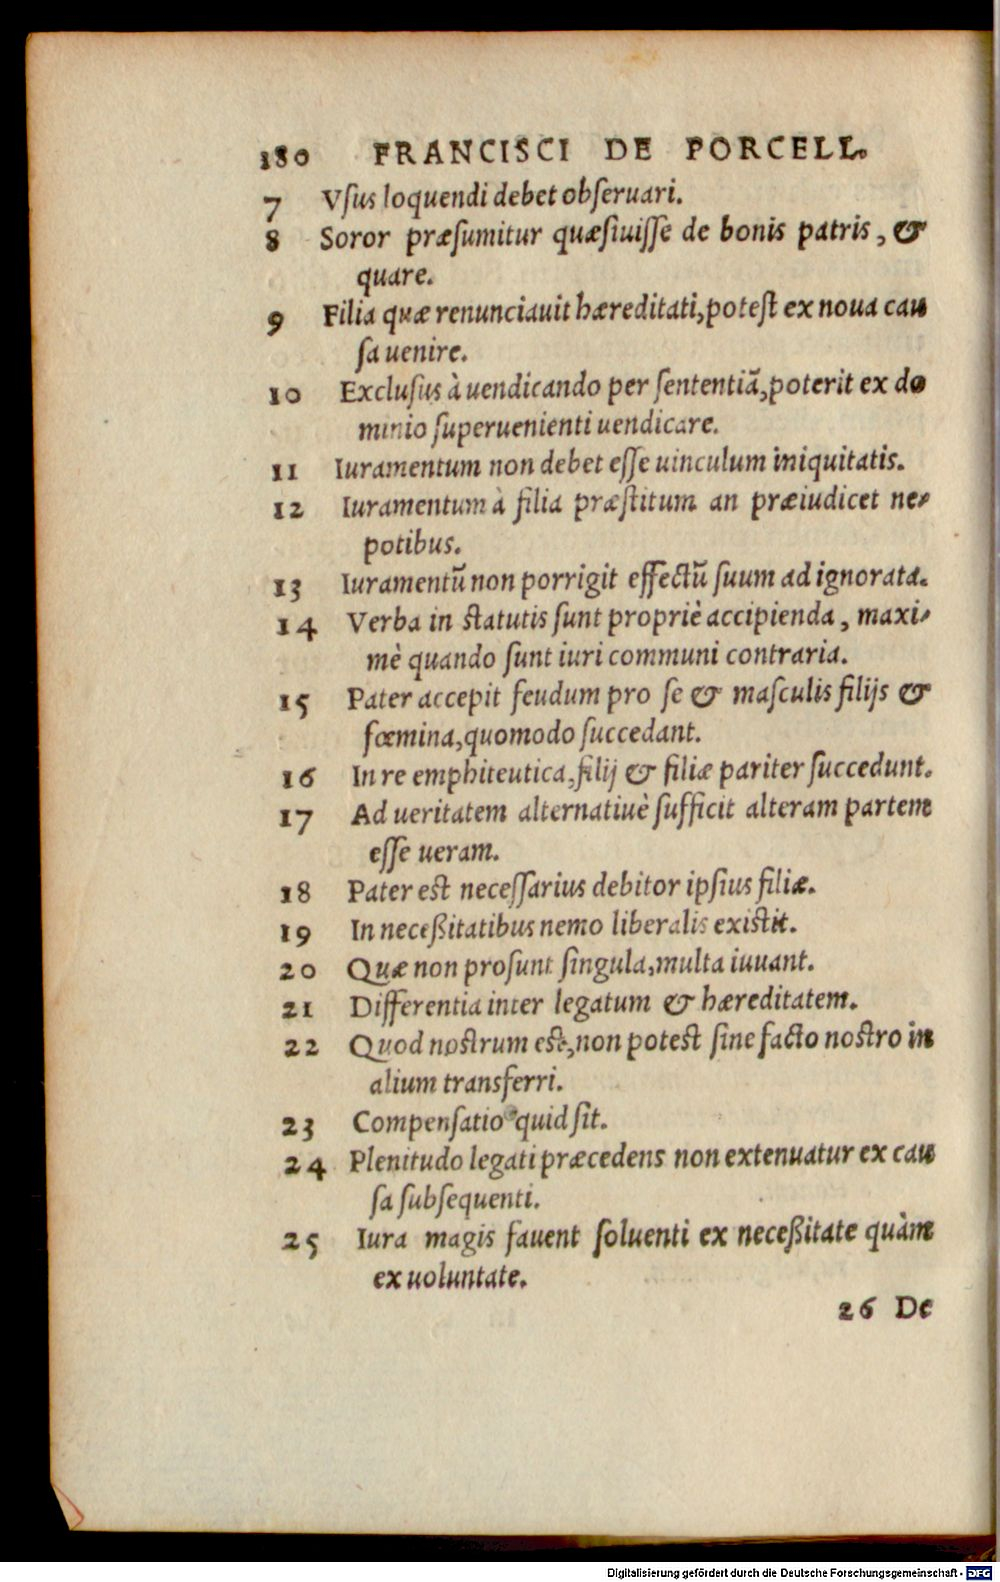 180 FRANCISCI DE PORCELL.
7 Vſus loquendi debet obſeruari.
8 Soror præſumitur quæſiuiſſe de bonis patris, &
quare.
9 Filia quæ renunciauit hæreditati, poteſt ex noua cau
ſa uenire.
10 Excluſus à uendicando per ſententiã, poterit ex do
minio ſuperuenienti uendicare.
11 Iuramentum non debet eſſe uinculum iniquitatis.
12 Iuramentum à filia præſtitum an præiudicet ne-
potibus.
13 Iuramentũ non porrigit effectũ ſuum ad ignorata.
14 Verba in ſtatutis ſunt propriè accipienda, maxi-
mè quando ſunt iuri communi contraria.
15 Pater accepit feudum pro ſe & maſculis filijs &
fœmina, quomodo ſuccedant.
16 In re emphiteutica, filij & filiæ pariter ſuccedunt.
17 Ad ueritatem alternatiuè ſufficit alteram partem
eſſe ueram.
18 Pater eſt neceſſarius debitor ipſius filiæ.
19 In neceßitatibus nemo liberalis exiſtit.
20 Quæ non proſunt ſingula, multa iuuant.
21 Differentia inter legatum & hæreditatem.
22 Quod noſtrum eſt, non poteſt ſine facto noſtro in
alium transferri.
23 Compenſatio quid ſit.
24 Plenitudo legati præcedens non extenuatur ex cau
ſa ſubſequenti.
25 Iura magis fauent ſoluenti ex neceßitate quàm
ex uoluntate.
26 De
Digitalisierung gefördert durch die Deutsche Forschungsgemeinschaft - DFG